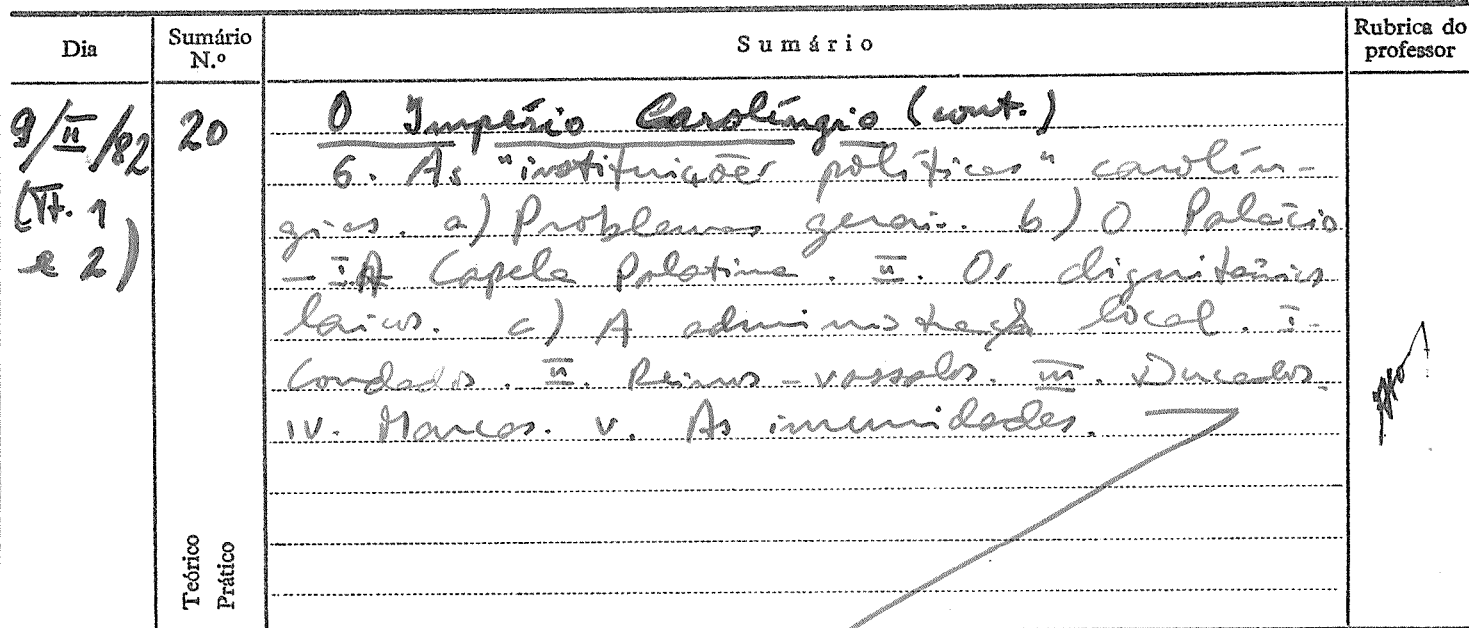 Dia Sumário N.º Sumário Rubrica do professor
9/II/82 20 O Império Carolíngio (cont.)
(T. 1 e 2) 6. As "instituições políticas" carolín-
gias. a) Problemas gerais. b) O Palácio
- I A Capela Palatina. II. Os dignitários
laicos. c) A administração local. I.
Condados. II. Reinos-vassalos. III. Ducados.
IV. Marcas. V. As imunidades.
Teórico
Prático